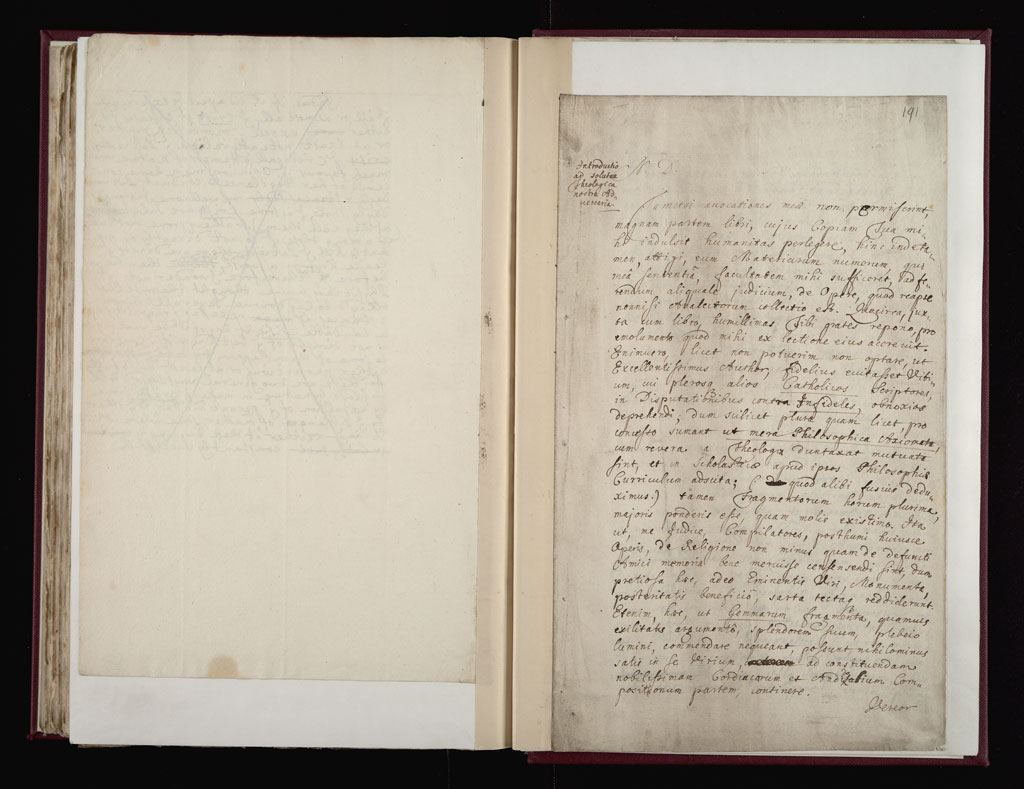 191
Introductio
ad solutæ
Theologica
nostra Ad
versaria
N. D.
avocationes meæ non permiserint,
magnam partem libri, cujus Copiam Tua mi-
hi indulsit humanitas perlegere, hinc inde ta-
men, attigi, eum Materiarum numerum, qui
meâ sententiâ, facultatem mihi sufficeret, ad fe-
rendum aliquale judicium, de Opere, quod reapse
nonnisi Analectorum collectio est. Quacirca, jux-
ta cum libro, humillimas Tibi grates repono, pro
emolumento quod mihi ex lectione eius accrevit.
Enimvero, licet non potuerim non optare, ut
Excellentissimus Author, fidelius evitasset Viti-
um, cui plerosq alios Catholicos Scriptores,
in Disputationibus contra Infideles, obnoxios
deprehendi; dum scilicet plura quam licet, pro
concesso sumant ut mera Philosophica Axiomata,
cum revera a Theologia duntaxat mutuata
sint, et in Scholasticæ apud ipsos Philosophiæ
Curriculum adscita; ( quod alibi fusius dedu-
ximus:) tamen Fragmentorum horum plurima,
majoris ponderis esse, quam molis existimo. Ita
ut, me Judice, Compilatores, posthumi huiusce
Operis, de Religione non minus quam de defuncti
Amici memoria bene meruisse censendi sint, dum
pretiosa hæc, adeo Eminentis Viri, Monumenta,
posteritatis beneficio, sarta tectaq reddiderunt.
Etenim, hæc, ut Gemmarum fragmenta, quamvis
exilitatis argumento, splendorem suum, plebeio
lumini, commendare nequeant, possunt nihilominus
satis in se Virium, ad constituendam
nobilissimam Cordiacarum et Com-
positionum partem, continere.
Vereor